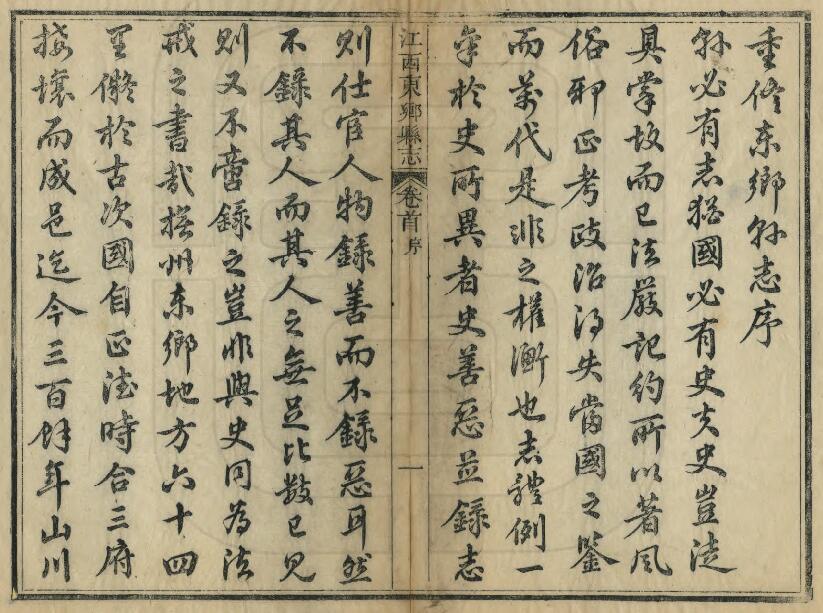 重修东鄉縣志序
縣必有志猶國必有史夫史豈徒
具掌故而已法嚴記約所以著風
俗邪正考政治得失當國之鑒
而萬代是非之權衡也志體例一
準於史所異者史善惡並錄志
江西東鄉縣志
卷首
序
一
則仕宦人物錄善而不錄惡耳然
不錄其人而其人之無足比數已見
則又不啻錄之豈非與史同為法
戒之書哉撫州东鄉地方六十四
里儗於古次國自正德時合三府
接壤而成邑迄今三百餘年山川